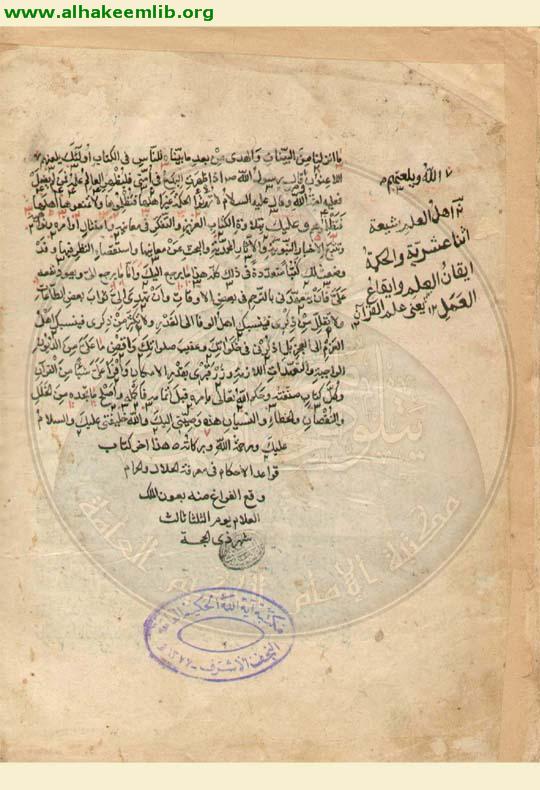 www.alhakeemlib.org
ما انزلنا من البينات والهدى من بعد ما بيناه للناس في الكتاب اولئك يلعنهم
الله وقال رسول الله ص اذا ظهرت البدع في امتي فليظهر العالم علمه فمن لم يفعل
فعليه لعنة الله وقال عليه السلام لا تؤتوا الحكمة غير اهلها فتظلموها ولا تمنعوها اهلها
فتظلموهم وعليك بتلاوة الكتاب العزيز والتفكر في معانيه وامتثال اوامره ونواهيه
وتتبع الاخبار النبوية والاثار المحمدية والبحث عن معانيها واستقصاء النظر فيها وقد
وضعت لك كتبا متعددة في ذلك كله هذا ما يرجع اليك واما ما يرجع الي ويعود نفعه
علي فان تتعهدني بالترحم في بعض الاوقات وان تهدي الي ثواب بعض الطاعات
ولا تقلل من ذكري فينسبك اهل الوفا الى الغدر ولا تكثر من ذكري فينسبك اهل
العزم الى العجز بل اذكرني في خلواتك وعقيب صلواتك واقض ما علي من الديون
الواجبة والتعهدات اللازمة وزر قبري بقدر الامكان واقرأ عليه شيئا من القران
وكل كتاب صنفته وحكم الله تعالى بامره قبل اتمامه فاكمله واصلح ما تجده من الخلل
والنقصان والخطاء والنسيان هذه وصيتي اليك والله خليفتي عليك والسلام
عليك ورحمة الله وبركاته هذا اخر كتاب
قواعد الاحكام في معرفة الحلال والحرام
وقع الفراغ منه بعون الملك
العلام يوم الثلثا ثالث
شهر ذي الحجة
الله ويلعنهم
اهل العلم شيعة
اثنا عشرية والحكمة
ايقان العلم وايقاع
العمل يعني علم القرآن
مكتبة آية الله الحكيم العامة
النجف الاشرف - ١٣٧٧ هـ
مكتبة الامام الحكيم العامة